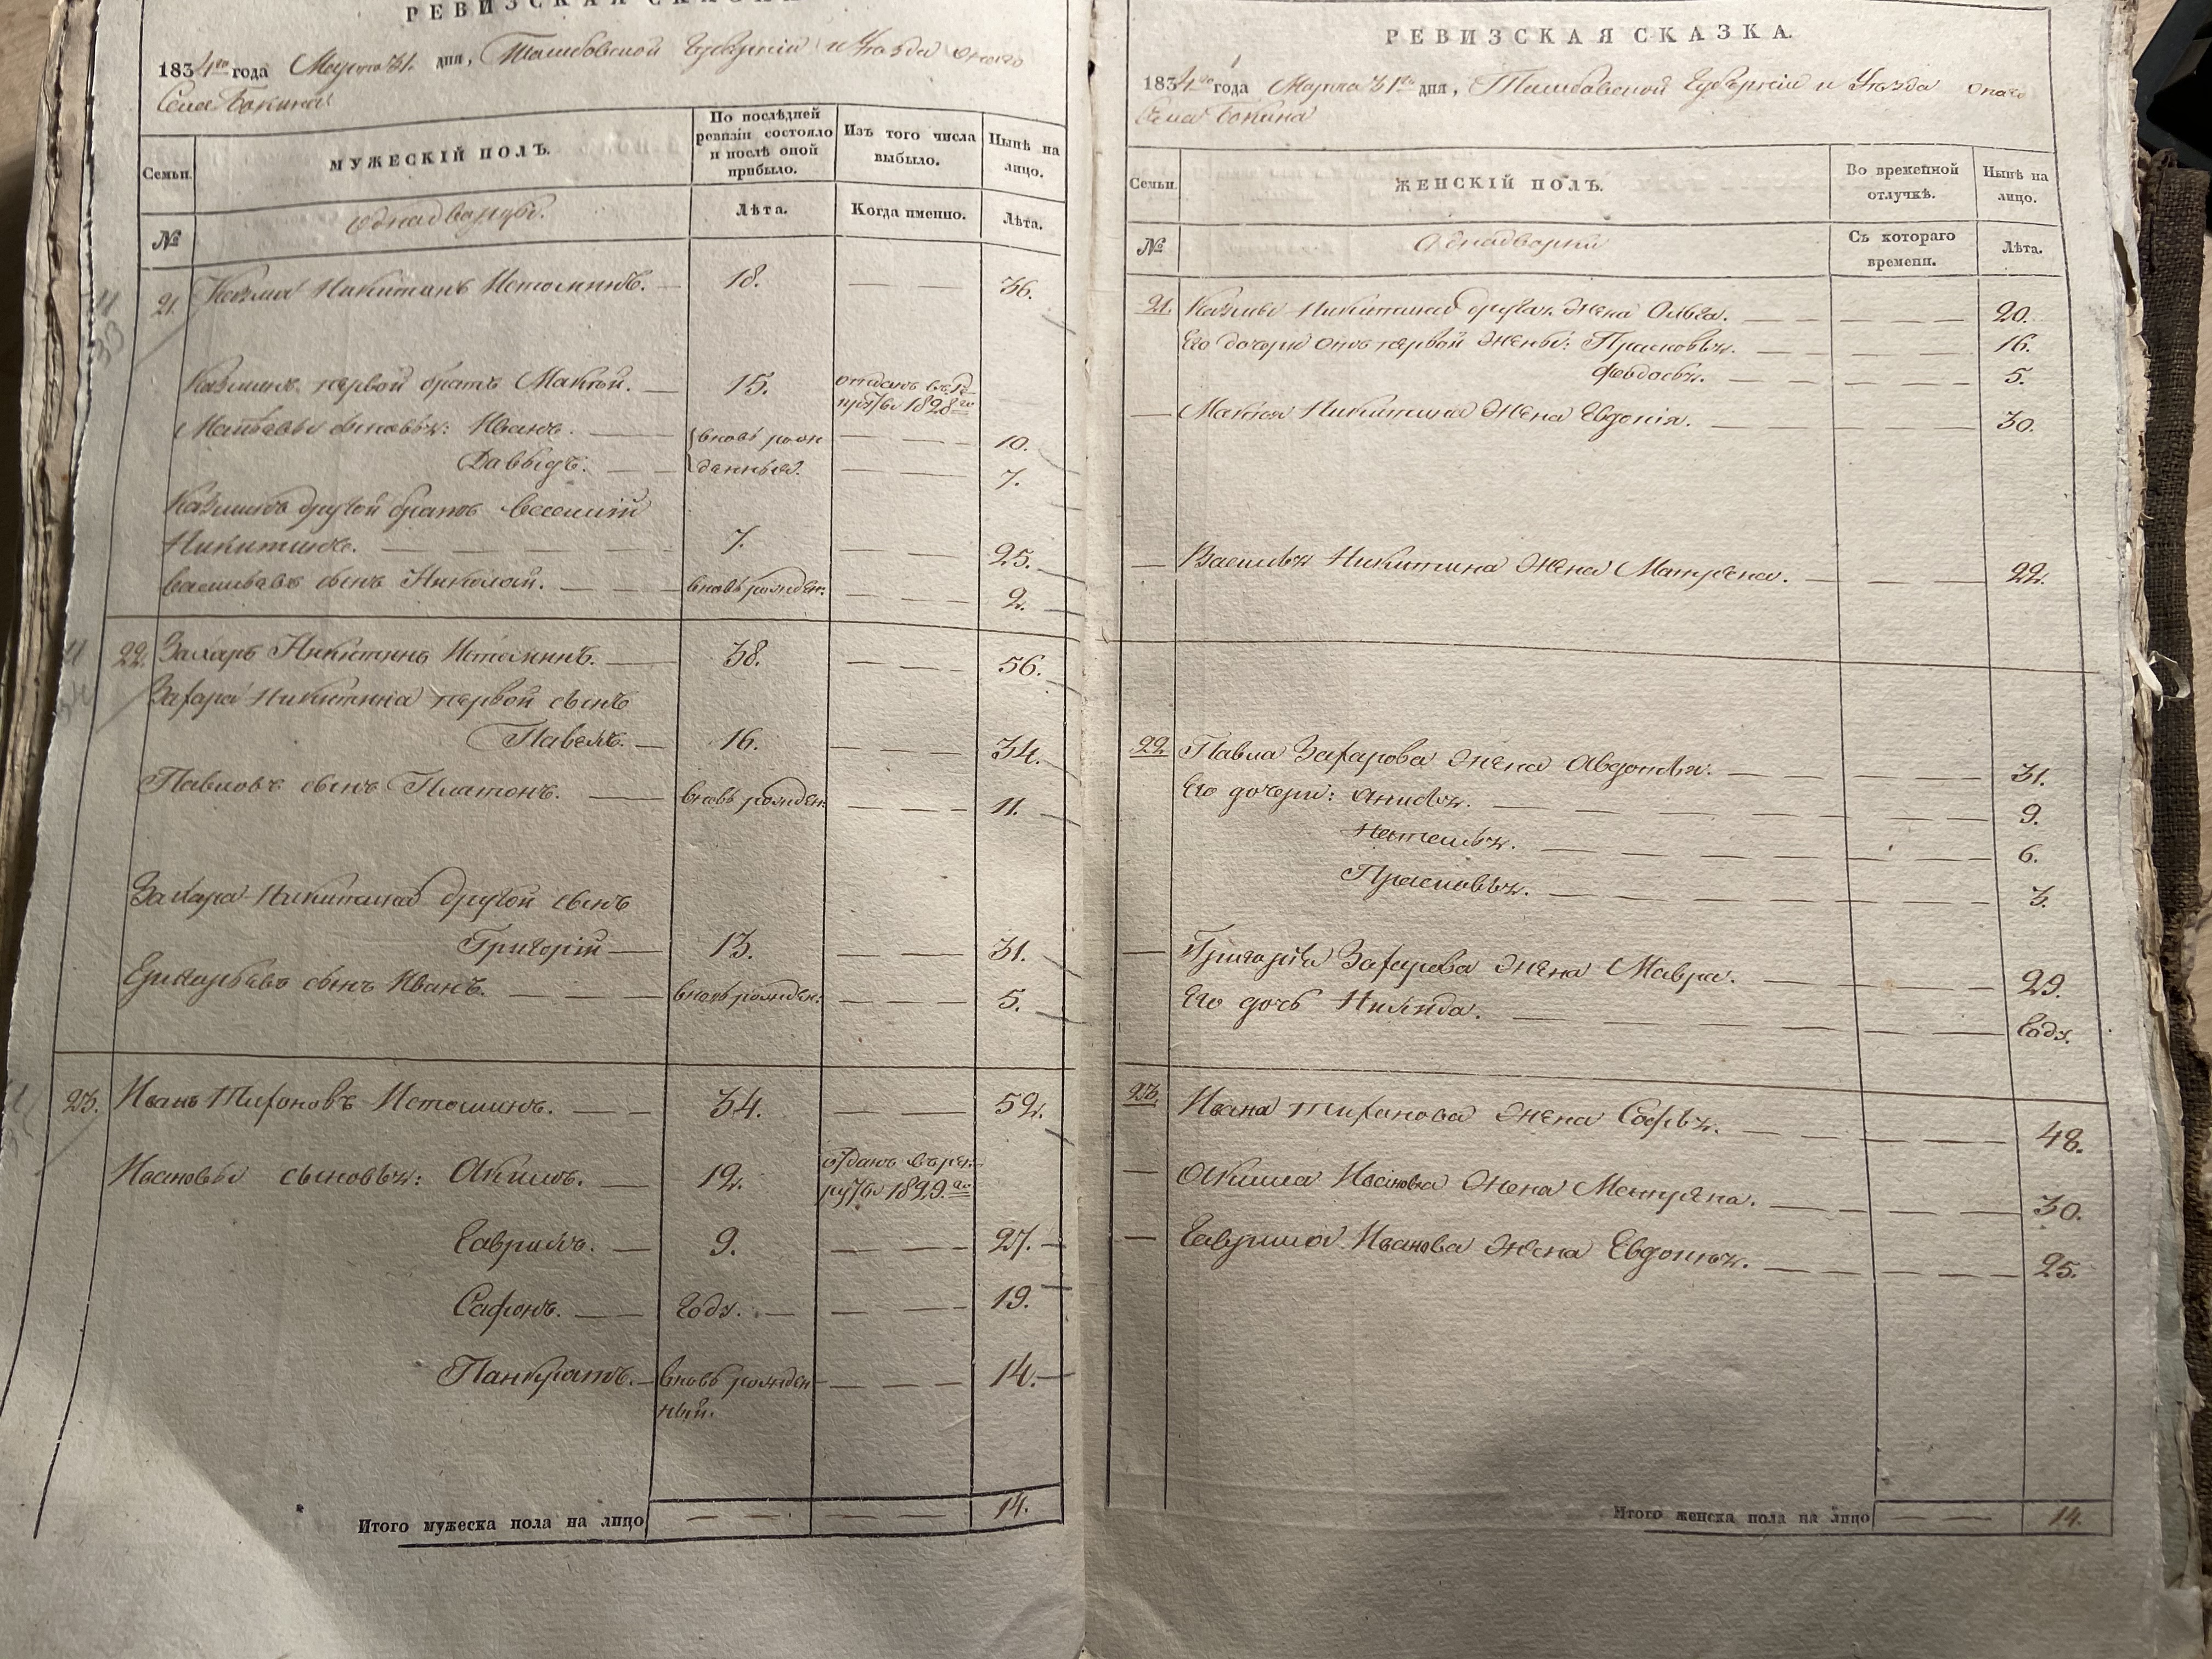 РЕВИЗСКАЯ СКАЗКА
1834го года Марта 31. дня, Тамбовской Губерніи и Уѣзда онаго
Села Бокина
Семьи.
МУЖЕСКІЙ ПОЛЪ.
По послѣдней ревизіи состояло и послѣ оной прибыло.
Изъ того числа выбыло.
Нынѣ на лицо.
№
Однадворцы.
Лѣта.
Когда именно.
Лѣта.
21. Козма Никитинъ Истоминъ. — 18. — — 36.
Козминъ первой братъ Макѣй. — 15. отданъ въ
1828го
сыновья: Иванъ. — вновь рож — — 10.
Давыдъ. — денныя. — — 7.
Козминъ другой братъ Василій
Никитинъ. — — — 7. — — 25.
Васильевъ сынъ Николай. — — вновь рожден: — — 2.
22. Захаръ Никитинъ Истоминъ. — 38. — — 56.
Захара Никитина первой сынъ
Павелъ. — 16. — — 34.
Павловъ сынъ Платонъ. — вновь рожден: — — 11.
Захара Никитина другой сынъ
Григорій — 13. — — 31.
Григорьевъ сынъ Иванъ. — — вновь рожден: — — 5.
23. Иванъ Тифоновъ Истоминъ. — — 34. — — 52.
Ивановы сыновья: Акимъ. — 12. отданъ в рек
руты 1829.го
Гаврилъ. — 9. — — 27.
Сафонъ. — году. — — — 19.
Панкратъ. — вновь рожден — — 14.
ный.
Итого мужеска пола на лицо — — 14.
РЕВИЗСКАЯ СКАЗКА.
1834го года Марта 31го дня, Тамбовской Губерніи и Уѣзда онаго
Села Бокина
Семьи.
ЖЕНСКІЙ ПОЛЪ.
Во временной отлучкѣ.
Нынѣ на лицо.
№
Однадворки
Съ котораго времени.
Лѣта.
21. Козмы Никитина другая жена Ольга. — — — 20.
Его дочери отъ первой жены: Прасковья. — — — 16.
Федосья. — — — 5.
— Макея Никитина жена Евдокія. — — — 30.
— Василья Никитина жена Матрена. — — — 22.
22. Павла Захарова жена Авдотья. — — — 31.
Его дочери: Анисья. — — — 9.
Наталья. — — — 6.
Прасковья. — — — 3.
— Григорія Захарова жена Мавра. — — — 29.
Его дочь — — — году.
23. Ивана Тифонова жена Софья. — — — 48.
— Акима Иванова жена Матрена. — — — 30.
— Гаврила Иванова жена Евдокья. — — — 25.
Итого женска пола на лицо — — 14.